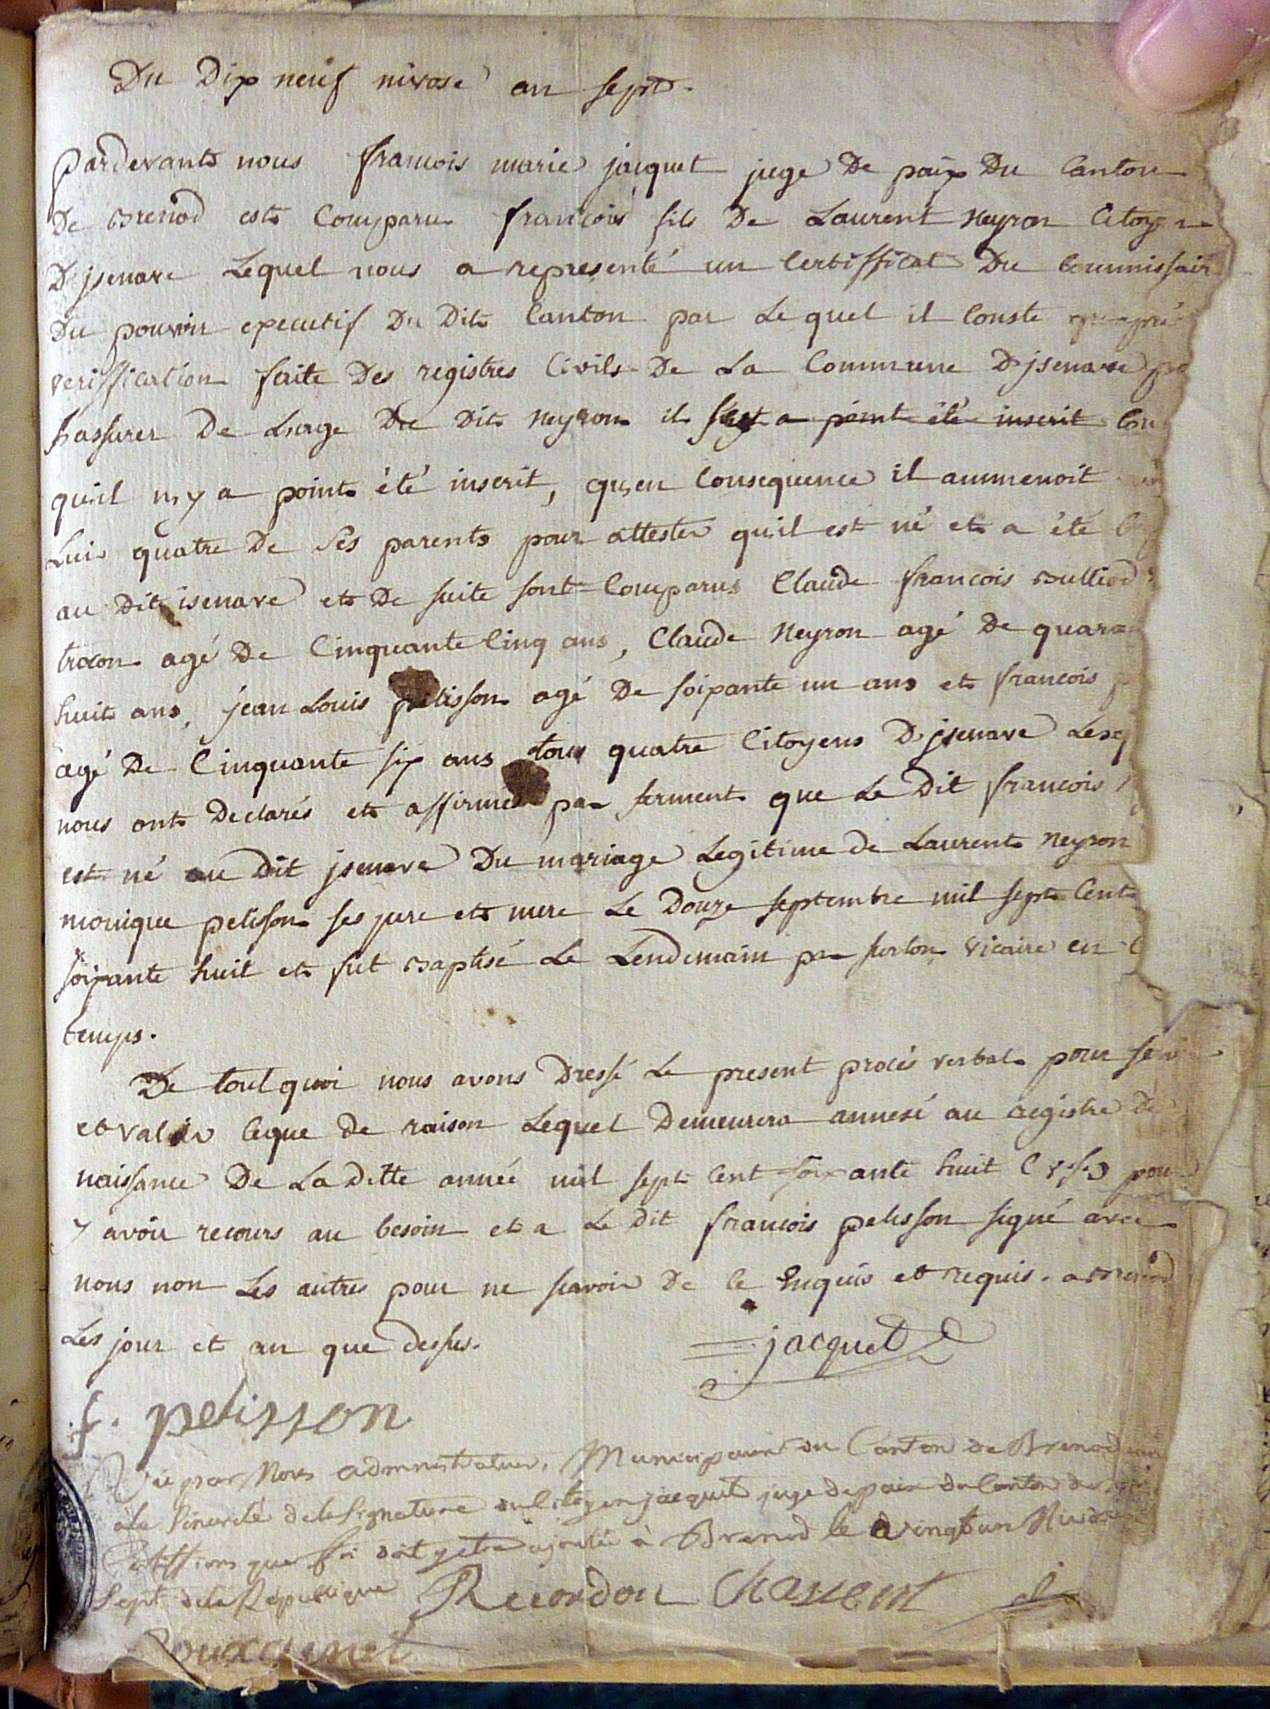 Du Dix neuf nivose an sept.
Pardevants nous francois marie jacquet juge De paix Du Canton
De Brenod est Comparu francois fils De Laurent Neyron Citoyen
D'jsenave Lequel nous a representé un Certifficat Du Commissair
Du pouvoir executif Du Dit Canton par Le quel il Conste
veriffication faite Des registres Civils De La Commune D'jsenave
s'assurer De Lage Du Dit Neyron il n'y a point été inscrit
quil n'y a point été inscrit, qu'en Consequence il ammenoit
Lui quatre De Ses parents pour attester quil est né et a été
au Dit isenave et De suite sont Comparus Claude francois Bulliod
agé De Cinquante Cinq ans, Claude Neyron agé De quaran
huit ans, jean Louis pelisson agé De soixante un ans et francois
agé De Cinquante six ans tous quatre Citoyens D'jsenave Lesq
nous ont Declarés et affirmés par serment que Le Dit francois
est né au Dit jsenave Du mariage Legitime de Laurent Neyron
monique pelisson ses pere et mere Le Douze septembre mil sept Cent
soixante huit et fut Baptisé Le Lendemain par vicaire en
temps.
De tout quoi nous avons Dressé Le present procés verbal pour
et valoir Ceque de raison Lequel Demeurera annexé au registre de
naissance De La ditte année mil sept Cent soixante huit pour
y avoir recours au besoin et a Le Dit francois pelisson signé avec
nous non Les autres pour ne scavoir De Ce Enquis et requis. a Brenod
Les jour et an que dessus.
jacquet
f. pelisson
Vu par Nous administrateurs Municipaux du Canton de Brenod
a la Sincerité de la Signature du Citoyen jacquet juge de paix du Canton de
que foi doit y etre ajoutée à Brenod le vingt un Nivose
Sept de la Republique Recordon